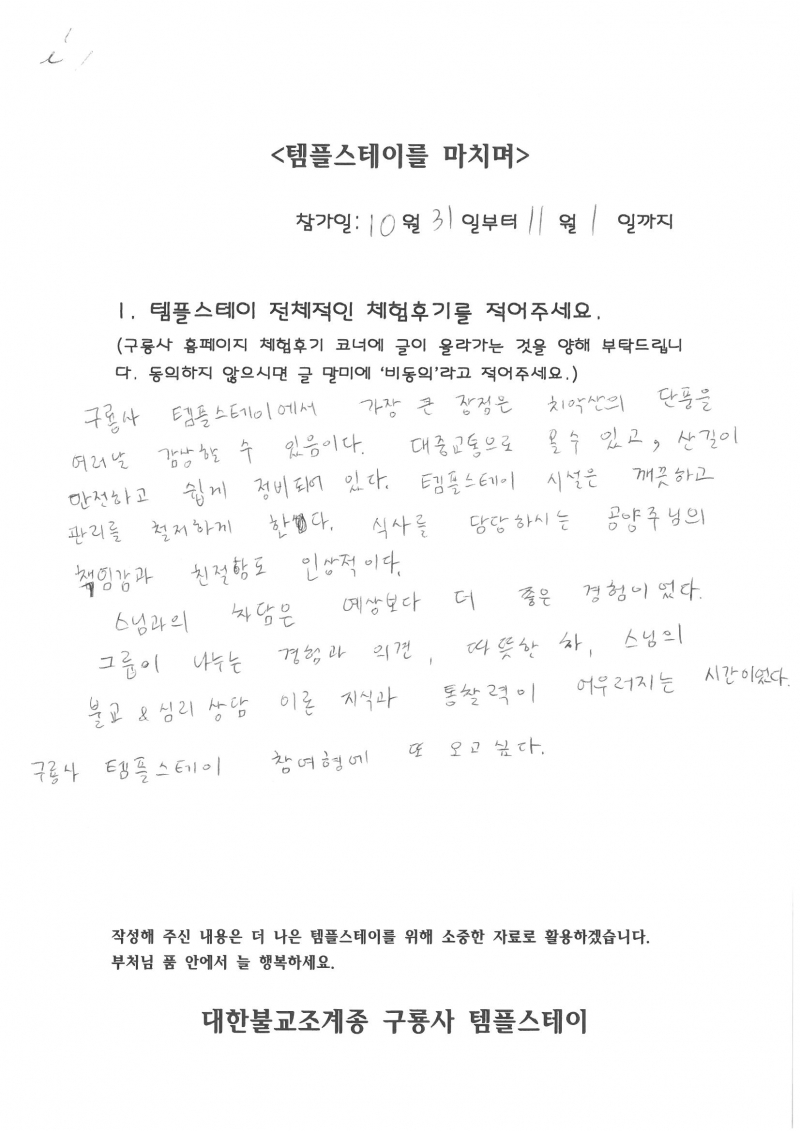 <템플스테이를 마치며>
참가일: 10월 31일부터 11월 1일까지
1. 템플스테이 전체적인 체험후기를 적어주세요.
(구룡사 홈페이지 체험후기 코너에 글이 올라가는 것을 양해 부탁드립니
다. 동의하지 않으시면 글 말미에 '비동의'라고 적어주세요.)
구룡사 템플스테이에서 가장 큰 장점은 치악산의 단풍을
여러날 감상할 수 있음이다. 대중교통으로 올 수 있고, 산길이
안전하고 쉽게 정비되어 있다. 템플스테이 시설은 깨끗하고
관리를 철저하게 한다. 식사를 담당하시는 공양주님의
책임감과 친절함도 인상적이다.
스님과의 차담은 예상보다 더 좋은 경험이었다.
그룹이 나누는 경험과 의견, 따뜻한 차, 스님의
불교 & 심리 상담 이론 지식과 통찰력이 어우러지는 시간이었다.
구룡사 템플스테이 참여형에 또 오고 싶다.
작성해 주신 내용은 더 나은 템플스테이를 위해 소중한 자료로 활용하겠습니다.
부처님 품 안에서 늘 행복하세요.
대한불교조계종 구룡사 템플스테이